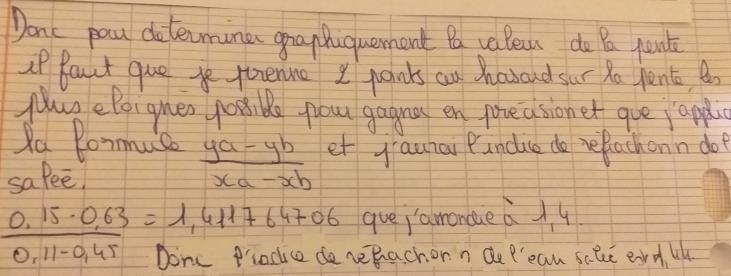 Donc pour determiner graphiquement la valeur de la pente
il faut que je prenne 2 points au hasard sur la pente, les
plus eloignés possible pour gagner en précision et que j'applic
la formule ya - yb et j'aurai l'indice de refraction n de l'
salée. xa - xb
0,15 - 0,63 = 1,411764706 que j'arrondie à 1,4.
0,11 - 0,45 Donc l'indice de refraction n de l'eau salée est